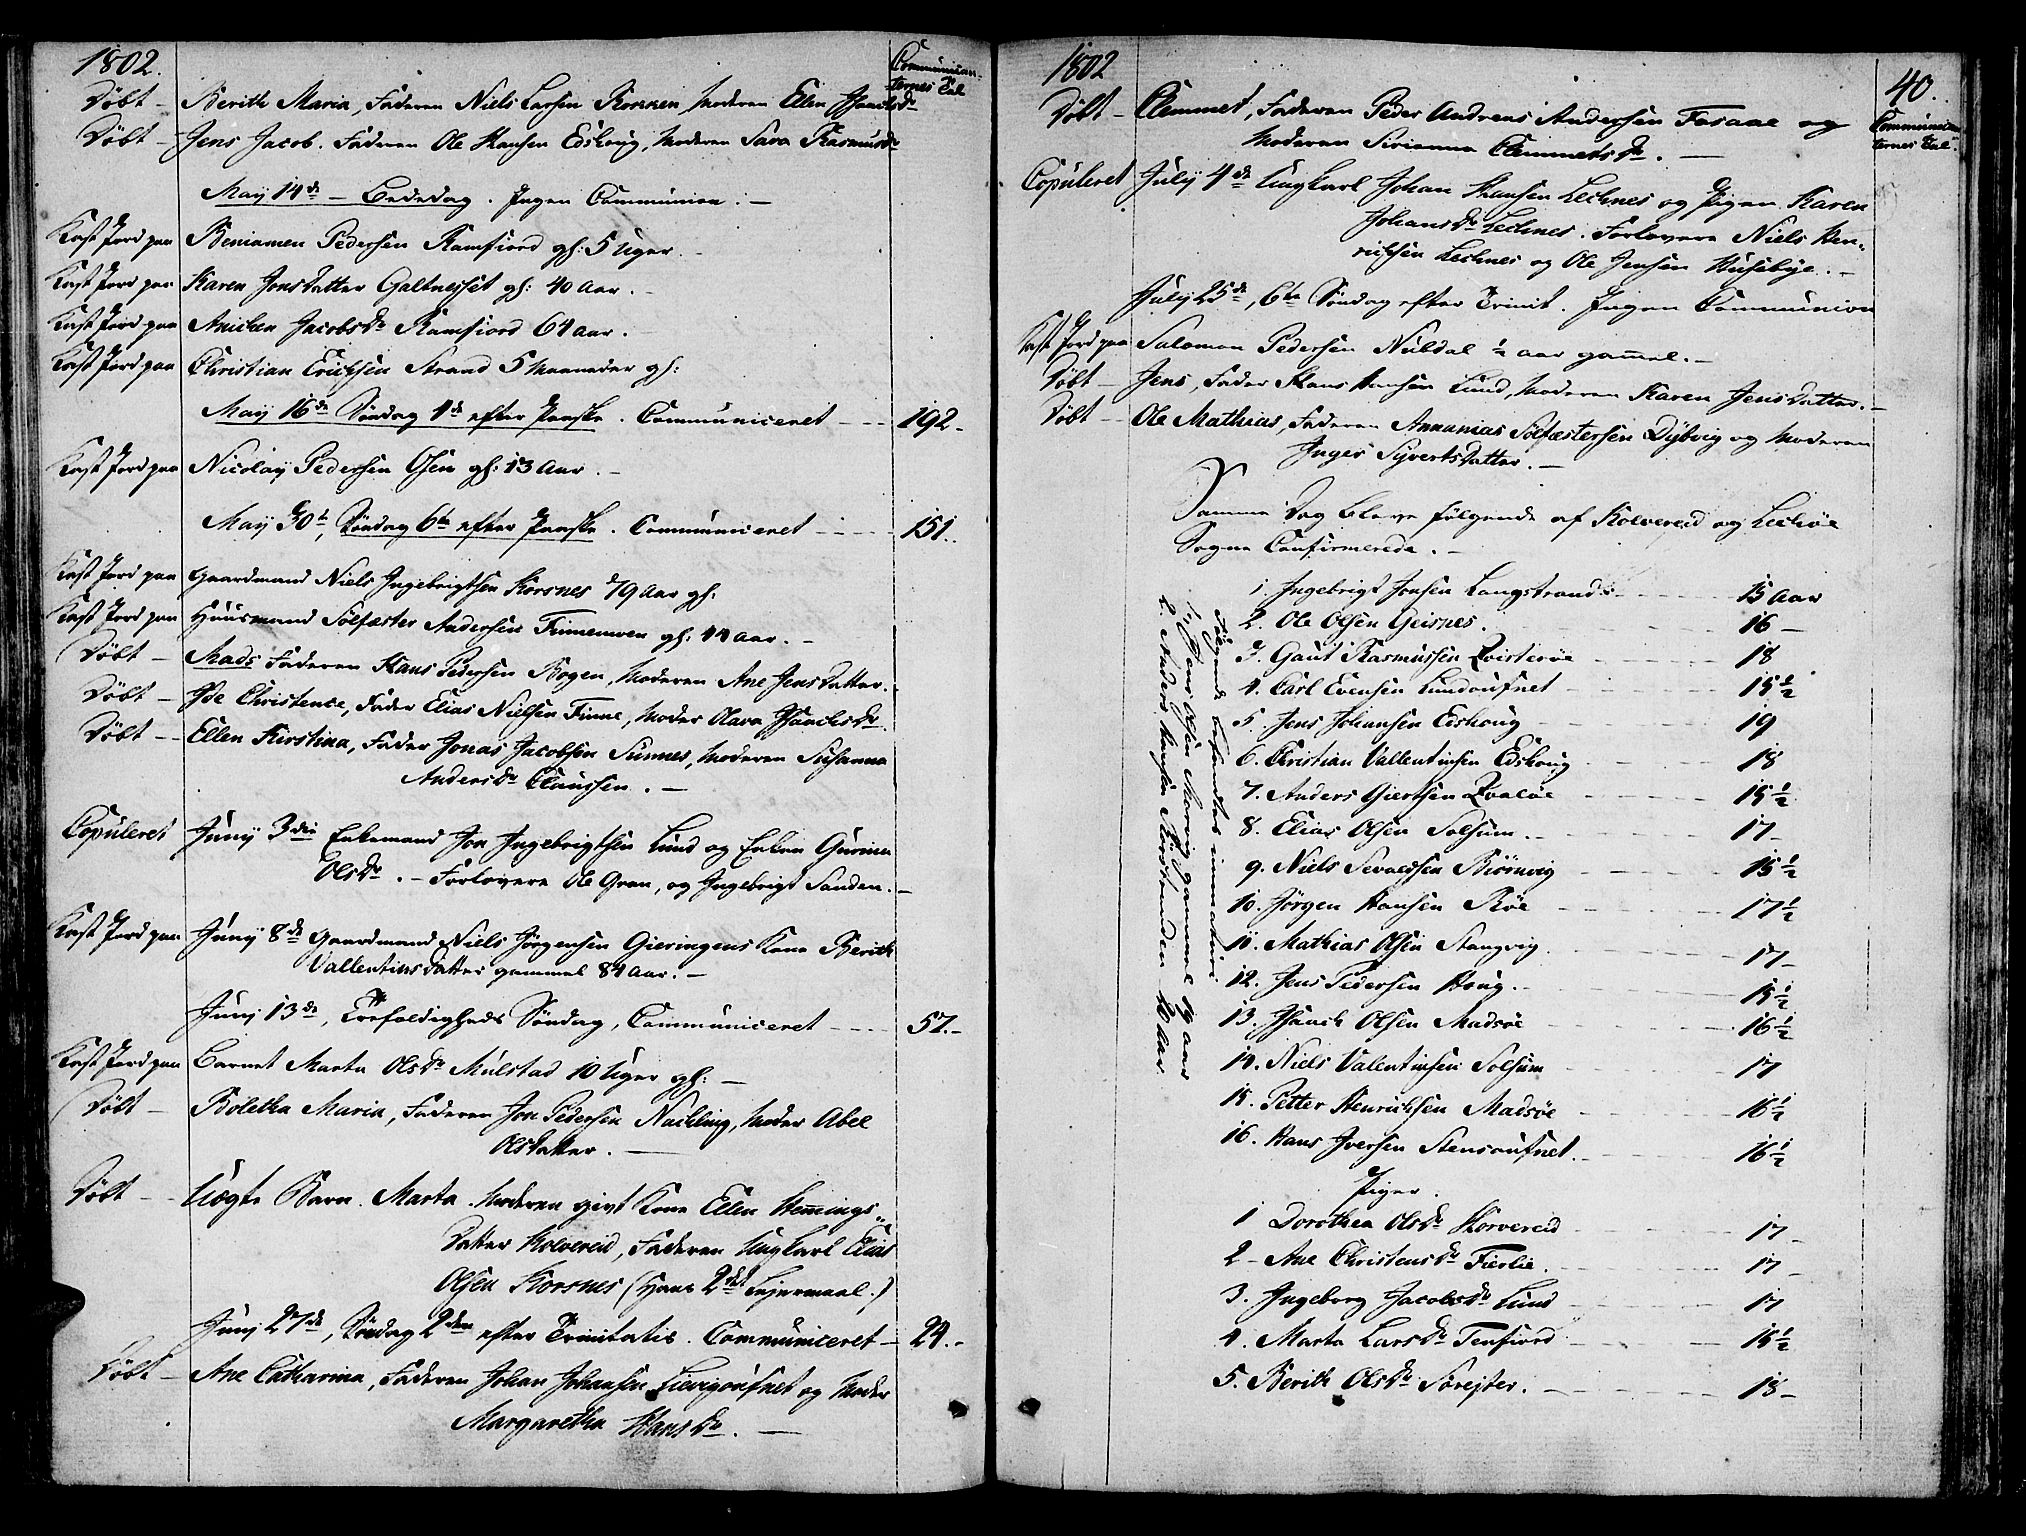 1802.
Communican-
ternes Tal
Døbt – Berith Maria, Faderen Niels Larsen Kornen, Moderen Ellen Isachsdr
Døbt – Jens Jacob. Faderen Ole Hansen Edshoug, Moderen Sara Rasmusdr
May 14de – Bededag. Ingen Communion. –
Kast Jord paa Beniamen Pedersen Ramfiord gl: 5 Uger. –
Kast Jord paa Karen Jonsdatter Galtnesset gl: 40 Aar. –
Kast Jord paa Anichen Jacobsdr Ramfiord 64 aar. –
Kast Jord paa Christian Erichsen Strand 5 Maaneder gl:
May 16de Søndag 4de efter Paaske. Communiceret – – – 192 –
Kast Jord paa Nicolay Pedersen Osen gl: 13 Aar. –
May 30te, Søndag 6te efter Paaske. Communiceret – – – 151.
Kast Jord paa Gaardmand Niels Ingebrigtsen Korsnes 79 aar gl.
Kast Jord paa Huusmand Sølfæster Andersen Finnemoen gl: 44 aar. –
Døbt – Mads Faderen Hans Pedersen Bogen, Moderen Ane Jensdatter.
Døbt – Ide Christence, Fader Elias Nielsen Finne, Moder Olava Isachsdr
Døbt – Ellen Kirstina, Fader Jonas Jacobsen Sunnes, Moderen Susanna
Andersdr Claussen. –
Copuleret Juny 3die Enkemand Jon Ingebrigtsen Lund og Enken Gurina
Olsdr. – Forlovere Ole Gran, og Ingebrigt Sanden. –
Kast Jord paa Juny 8de Gaardmand Niels Jørgensen Gieringens Kone Berith
Vallentinsdatter gammel 84 Aar. –
Juny 13de, Trefoldigheds Søndag, Communiceret – – – 57. –
Kast Jord paa Barnet Marta Olsdr Mulstad 10 Uger gl: –
Døbt – Boletha Maria, Faderen Jon Pedersen Nachling, Moder Abel
Olsdatter. –
Døbt – Uægte Barn. Marta. Moderen givt Kone Ellen Hemings-
datter Kolvereid, Faderen Ungkarl Elias
Olsen Korsnes (Hans 2det Leyermaal.)
Juny 27de, Søndag 2den efter Trinitatis. Communiceret – 24. –
Døbt – Ane Catharina, Faderen Johan Johansen og Moder
Margaretha Hansdr. –
1802
40.
Communican-
ternes Tal.
Døbt – Clemmet, Faderen Peder Andreas Andersen Fosaae og
Moderen Sirianna Clemmetsdr. –
Copuleret July 4de Ungkarl Johan Hansen Lechnes og Pigen Karen
Johansdr Lechnes. Forlovere Niels Hen-
richsen Lechnes og Ole Jensen Husebye. –
July 25de, 6te Søndag efter Trinit. Ingen Communion
Kast Jord paa Salomon Pedersen Nubdal ½ aar gammel. –
Døbt – Jens, Fader Hans Hansen Lund, Moderen Karen Jensdatter. –
Døbt – Ole Mathias, Faderen Annanias Sølfæstersen Dybvig og Moderen
Inger Syvertsdatter. –
Samme Dag bleve følgende af Kolvereid og Lechøe
Sogne Confirmerede. –
1. Ingebrigt Jonsen Langstrand – – – 15 Aar
2. Ole Olsen Geisnes. – – – 16 –
3. Gaut Rasmussen Qvisterøe – – – 18
4. Carl Evensen Lundoufnet – – – 15½
5. Jens Johansen Edshoug – – – 19
6. Christian Vallentinsen Edshoug – – – 18
7. Anders Giertsen Qvaløe – – – 15½
8. Elias Olsen Solsum. – – – 17 –
9. Niels Sevaldsen Biørnvig – – – 15½
10. Jørgen Hansen Røe – – – 17½
11. Mathias Olsen Stangvig – – – 17 –
12. Jens Pedersen Houg. – – – 15½
13. Isaach Olsen Madsøe – – – 16½
14. Niels Valentinsen Solsum – – – 17
15. Petter Henrichsen Madsøe – – – 16½
16. Hans Iversen Stensoufnet. – – – 16½
Piger.
1 Dorothea Olsdr Horvereid – – – 17 –
2 – Ane Christensdr Fierlie. – – – 17 –
3. Ingeborg Jacobsdr Lund – – – 17
4. Marta Larsdr Tenfiord – – – 15½
5. Berith Olsdr Sørejter. – – – 18 –
Følgende befandtes immaturi
1. Jens Olsen Morvig gammel 19 aar
2. Anders Hansen 20 Aar